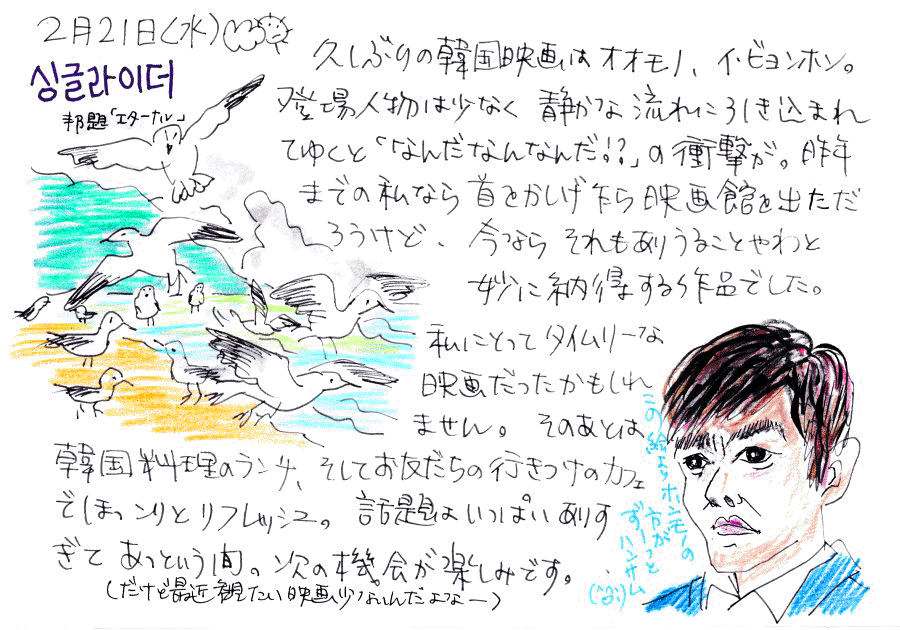 2月21日(水)
싱글라이더
邦題「エターナル」
久しぶりの韓国映画はオオモノ、イ・ビョンホン。
登場人物は少なく静かな流れに引き込まれ
てゆくと「なんだなんなんだ!?」の衝撃が。昨年
までの私なら首をかしげ乍ら映画館を出ただ
ろうけど、今なら それもありうることやわと
妙に納得する作品でした。
私にとってタイムリーな
映画だったかもしれ
ません。そのあとは
韓国料理のランチ、そしてお友だちの行きつけのカフェ
でほっこりとリフレッシュ。話題はいっぱいありす
ぎて あっという間。次の機会が楽しみです。
(だけど最近観たい映画少ないんだよなー)
この絵よりホンモノの
方がずーっと
ハンサム
(^o^;)